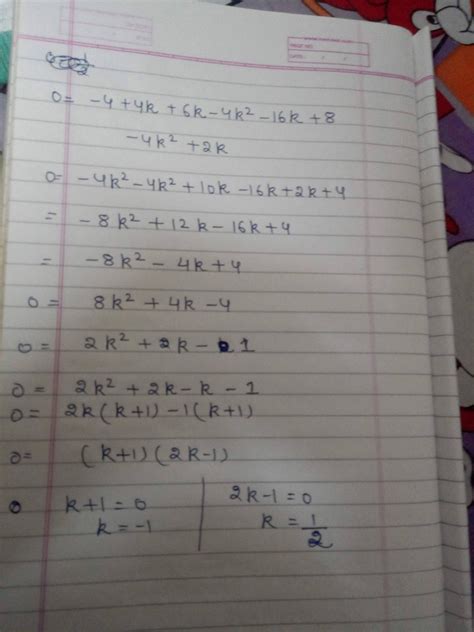 PAGE NO.
DATE: / /
0= -4+4k+6k-4k²-16k+8
-4k²+2k
0= -4k²-4k²+10k-16k+2k+4
= -8k²+12k-16k+4
= -8k²-4k+4
0= 8k²+4k-4
0= 2k²+2k-1
0= 2k²+2k-k-1
0= 2k(k+1)-1(k+1)
0= (k+1)(2k-1)
0 k+1=0 | 2k-1=0
k=-1 | k=1/2